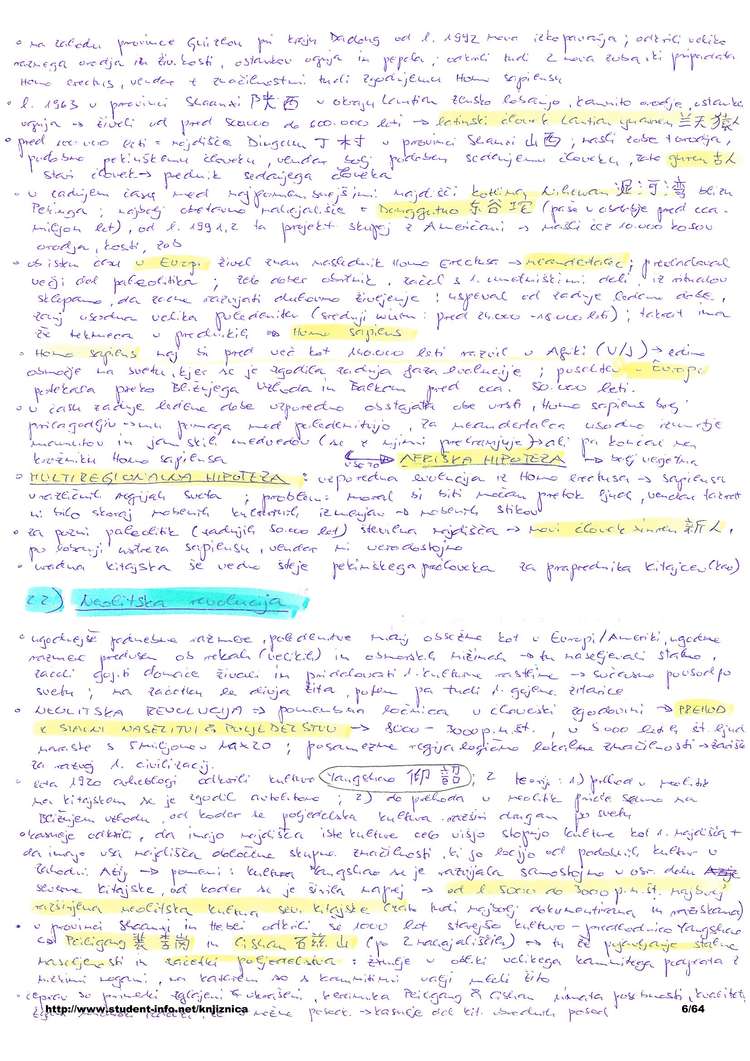 • na zahodu province Guizhou pri kraju Dadong od l. 1992 nova izkopavanja; odkrili veliko
raznega orodja in živ. kosti, ostankov ognja in pepela; odkrili tudi 2 nova zoba, ki pripadata
Homo erectus, vendar z značilnostmi tudi zgodnjemu Homo sapiensu
• l. 1963 v provinci Shaanxi 陕西 v okraju Lantian žensko lobanjo, kamnito orodje, ostanke
ognja → živeli od pred 800.000 do 600.000 leti → lantinski človek Lantian yuanren 兰天猿人
• pred 100.000 leti = najdišče Dingcun 丁村 v provinci Shanxi 山西; našli zobe + orodja,
podobno pekinškemu človeku, vendar bolj podoben sedanjemu človeku, zato guren 古人
stari človek → prednik sedanjega človeka
• v zadnjem času med najpomembnejšimi najdišči kotlina Nihewan 泥河湾 blizu
Pekinga; najbolj obetavno nahajališče = Dongguto 东谷坨 (paše v obdobje pred cca.
miljon let), od l. 1991,2 ta projekt skupaj z Američani → našli čez 10.000 kosov
orodja, kosti, zob
• ob istem času v Evropi živel znan naslednik Homo Erectusa → neandertalec; prevladoval
večji del paleolitika; zelo dober obrtnik, začel s 1. umetniškimi deli, iz ritualov
sklepamo, da začne razvijati duhovno življenje; uspeval od zadnje ledene dobe,
zanj usodna velika poledenitev (srednji würm: pred 24.000 - 18.000 leti); takrat ima
že tekmeca v prednikih => Homo sapiens
• Homo sapiens naj bi pred več kot 140.000 leti razvil v Afriki (V/J) → edino
območje na svetu, kjer se je zgodila zadnja faza evolucije; poselitev Evrope
potekala preko Bližnjega Vzhoda in Balkana pred cca. 50.000 leti.
• v času zadnje ledene dobe vzporedno obstajata obe vrsti, Homo sapiens bolj
prilagodljiv → mu pomaga med poledenitvijo, za neandertalca usodno izumrtje
mamutov in jamskih medvedov (se z njimi prehranjuje) → ali pa končal na
krožniku Homo sapiensa VSE TO AFRIŠKA HIPOTEZA → bolj verjetna
• MULTIREGIONALNA HIPOTEZA: vzporedna evolucija iz Homo erectusa → sapiensa
v različnih regijah sveta; problem: moral bi biti močan pretok ljudi, vendar takrat
ni bilo skoraj nobenih kulturnih izmenjav → nobenih stikov
• za pozni paleolitik (zadnjih 50.000 let) številna najdišča → novi človek xinren 新人,
po lobanji ustreza sapiensu, vendar ni verodostojno
• uradna kitajska še vedno šteje pekinškega pračloveka za praprednika Kitajcev (kao)
2.2.) Neolitska revolucija
• ugodnejše podnebne razmere, poledenitve manj obsežne kot v Evropi/Ameriki, ugodne
razmere predvsem ob rekah (velikih) in obmorskih nižinah → tu naseljevali stalno,
začeli gojiti domače živali in pridelovati 1. kulturne rastline → sočasno povsod po
svetu; na začetku le divja žita, potem pa tudi 1. gojene žitarice
• NEOLITSKA REVOLUCIJA → pomembna ločnica v človeški zgodovini → PREHOD
K STALNI NASELITVI & POLJEDELSTVU → 8000 - 3000 p.n.št., v 5000 letih št. ljudi
naraste s 5 miljonov na x20; posamezne regije logično lokalne značilnosti → žarišče
za razvoj 1. civilizacij.
• leta 1920 arheologi odkrili kulturo Yangshao 仰韶; 2 teoriji: 1) prihod v neolitik
na kitajskem se je zgodil avtohtono; 2) do prehoda v neolitik pride samo na
Bližnjem vzhodu, od koder se poljedelska kultura razširi drugam po svetu
• kasneje odkrili, da imajo najdišča iste kulture celo višjo stopnjo kulture kot 1. najdišča +
da imajo vsa najdišča določene skupne značilnosti, ki jo ločijo od podobnih kultur v
Zahodni Aziji → pomeni: kultura Yangshao se je razvijala samostojno v osr. delu
severne Kitajske, od koder se je širila naprej → od l. 5000 do 3000 p.n.št. najbolj
razširjena neolitska kultura sev. kitajske (zato tudi najbolj dokumentirana in raziskana)
• v provinci Shaanxi in Hebei odkrili še 1000 let starejšo kulturo - predhodnico Yangshao
Peiligang 裴李岗 in Cishan 磁山 (po 2 nahajališčih) → tu že pojavljanje stalne
naseljenosti in začetki poljedelstva: žrmlje v obliki velikega kamnitega podstavka z
nizkimi nogami, na katerem so s kamnitimi valji mleli žito
• čeprav so primerki zglajeni & okrašeni, keramika Peiligang & Cishan nimata posebnosti, kvalitete
http://www.student-info.net/knjiznica 6/64